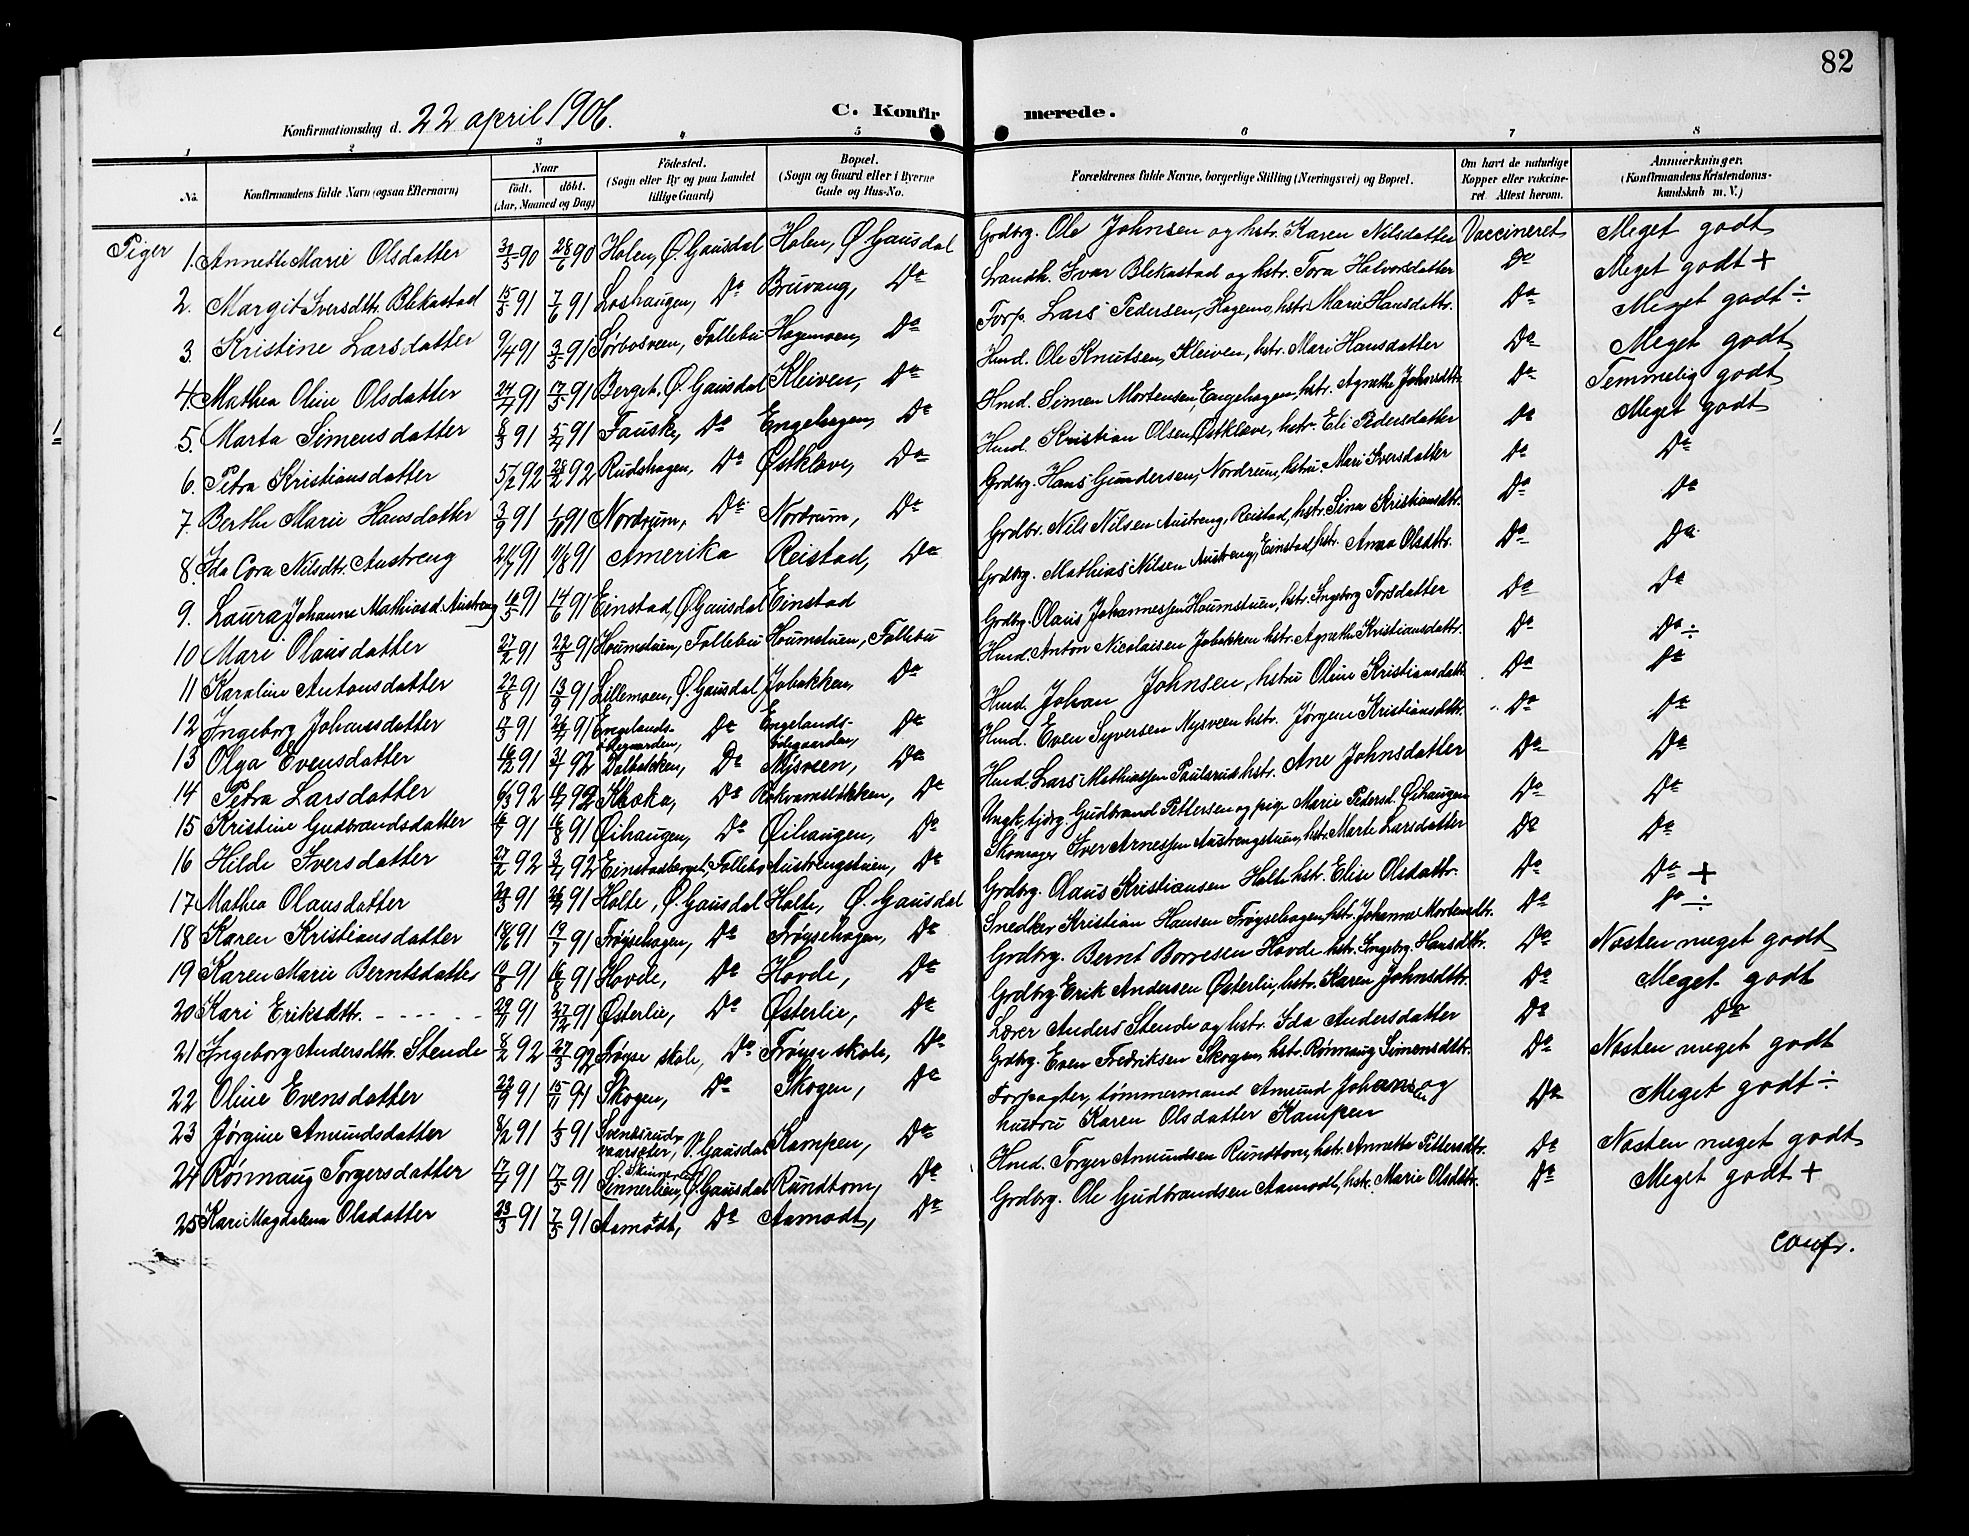 82
Konfirmationsdag d. 22 april 1906. C. Konfir merede.
1 2 3 4 5 6 7 8
No. Konfirmandens fulde Navn (ogsaa Efternavn) Naar født. døbt. (Aar, Maaned og Dag) Fødested. (Sogn eller By og paa Landet tillige Gaard) Bopæl. (Sogn og Gaard eller i Byerne Gade og Hus-No. Forældrenes fulde Navne, borgerlige Stilling (Næringsvei) og Bopæl. Om havt de naturlige Kopper eller vaccineret Attest herom. Anmerkninger. (Konfirmandens Kristendomskundskab m. V.)
Piger 1. Annette Marie Olsdatter 31/5 90 28/6 90 Holen, Ø. Gausdal Holen, Ø. Gausdal Grdbrg. Ole Johnsen og hstr. Karen Nilsdatter Vaccineret Meget godt
2. Margit Iversdtr. Blekastad 15/5 91 7/6 91 Loshaugen, Do Bruvang, Do Landh. Ivar Blekastad og hstr. Tora Halvorsdatter Do Meget godt +
3. Kristine Larsdatter 9/4 91 3/5 91 Sørbosveen, Follebu Hagemoen, Do Forp. Lars Pedersen, Hagemo, hstr. Mari Hansdattr. Do Meget godt ÷
4. Mathea Oline Olsdatter 24/4 91 17/5 91 Berget, Ø. Gausdal Kleiven, Do Hmd. Ole Knutsen, Kleiven, hstr. Mari Hansdatter Do Meget godt
5. Marta Simensdatter 8/3 91 5/4 91 Fauske, Do Engehagen, Do Hmd. Simen Mortensen, Engehagen, hstr. Agnethe Johnsdtr. Do Temmelig godt
6. Petra Kristiansdatter 5/2 92 28/2 92 Rudshagen, Do Østkleve, Do Hmd. Kristian Olsen Østkleve, hstr. Eli Pedersdatter Do Meget godt
7. Berthe Marie Hansdatter 3/9 91 91 Nordrum, Do Nordrum, Do Grdbrg. Hans Gundersen, Nordrum, hstru. Mari Iversdatter Do Do
8. Ida Cora Nilsdtr. Austreng 91 11/8 91 Amerika Reistad, Do Grdbr. Nils Nilsen Austreng, Reistad, hstr. Sina Kristiansdtr. Do Do
9. Laura Johanne Mathiasd. Austreng 91 14/6 91 Einstad, Ø. Gausdal Einstad Grdbrg. Mathias Nilsen Austreng, Einstad, hstr. Anna Olsdtr. Do Do
10 Mari Olausdatter 27/2 91 22/3 91 Houmstuen, Follebu Houmstuen, Follebu Grdbrg. Olaus Johannessen Houmstuen, hstr. Ingeborg Torsdatter Do Do
11 Karoline Antonsdatter 27/8 91 13/9 91 Lillemoen, Ø. Gausdal Jobakken, Do Hmd. Anton Nicolaisen Jobakken hstr. Agnethe Kristiansdattr. Do Do ÷
12 Ingeborg Johansdatter 91 26/4 91 Engelands-ødegaarden, Do Engelands-ødegaarden, Do Hmd. Johan Johnsen, hstru Oline Kristiansdatt. Do Do
13 Olga Evensdatter 16/12 91 31/1 92 Dalbakken, Do Nysveen, Do Hmd. Even Syversen Nysveen hstr. Jørgine Kristiansdtr. Do Do
14 Petra Larsdatter 6/3 92 92 Do Do Hmd. Lars Mathiassen hstr. Ane Johnsdatter Do Do
15 Kristine Gudbrandsdatter 91 16/8 91 Øihaugen, Do Øihaugen, Do Ungk. Gudbrand Pettersen og pige Marie Pedersd. Øihaugen Do Do
16 Hilde Iversdatter 27/2 92 3/4 92 Einstadberget, Follebu Austrengstuen, Do Skomager Iver Arnessen Austrengstuen, hstr. Marte Larsdatter Do Do
17 Mathea Olausdatter 29/3 91 26/4 91 Holte, Ø. Gausdal Holte, Ø. Gausdal Grdbrg. Olaus Kristiansen Holte hstr. Elise Olsdattr. Do Do +
18 Karen Kristiansdatter 18/6 91 19/7 91 Frøysehagen, Do Frøysehagen, Do Snedker Kristian Hansen Frøysehagen, hstr. Johanne Mortensdtr. Do Do ÷
19 Karen Marie Berntsdatter 91 16/8 91 Hovde, Do Hovde, Do Grdbrg. Bernt Borresen Hovde hstr. Ingebrg. Hansdttr. Do Næsten meget godt
20 Kari Eriksdttr. - - - - 91 27/12 91 Østerlie, Do Østerlie, Do Grdbrg. Erik Andersen Østerlie, hstr. Karen Johnsdttr. Do Meget godt
21 Ingeborg Andersdttr. Stende 8/2 92 27/3 92 Frøyse skole, Do Frøyse skole, Do Lærer Anders Stende og hstr. Ida Andersdatter Do Do
22 Oline Evensdatter 91 15/11 91 Skogen, Do Skogen, Do Grdbrg. Even Fredriksen Skogen, hstr. Rønnaug Simensdttr. Do Næsten meget godt
23 Jørgine Amundsdatter 8/2 91 91 Svenskrud-vaarsæter, V. Gausdal Kampen, Do Forpagter, tømmermand Amund Johansen og hustru Karen Olsdatter Kampen Do Meget godt ÷
24 Rønnaug Torgersdatter 17/4 91 17/5 91 Sinnerlien, Ø. Gausdal Rundtom, Do Hmd. Torger Amundsen Rundtom, hstr. Annette Pettersdttr. Do Næsten meget godt
25 Kari Magdalena Olsdatter 23/3 91 7/5 91 Aamodt, Do Aamodt, Do Grdbrg. Ole Gudbrandsen Aamodt, hstr. Marie Olsdttr. Do Meget godt +
confr.